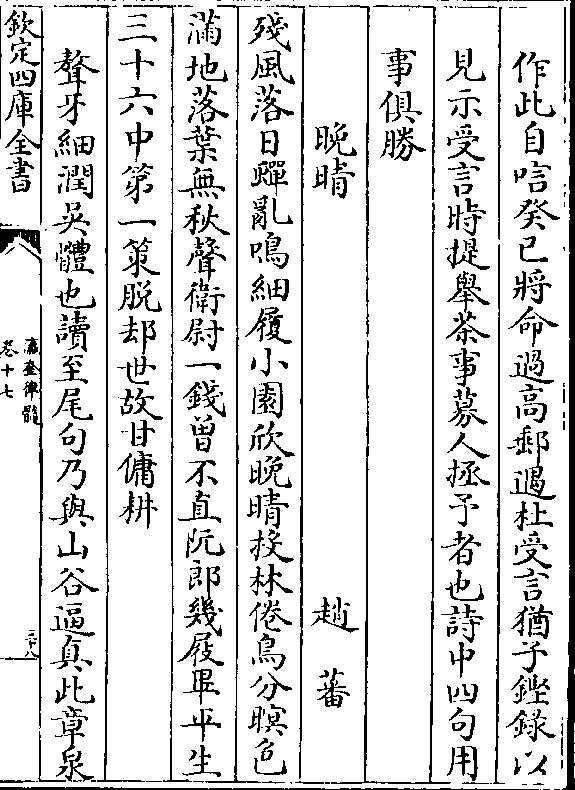 作此自唁癸已將命過高郵遇杜受言猶子鏗錄以
見示受言時提舉茶事募人拯予者也詩中四句用
事俱勝
晚晴　趙蕃
殘風落日蟬亂鳴細履小園欣晚晴投林倦鳥分暝色
滿地落葉無秋聲衛尉一錢曽不直阮郎幾屐畢平生
三十六中第一策脱却世故甘傭耕
聱牙細潤吳體也讀至尾句乃與山谷逼真此章泉
欽定四庫全書
瀛奎律髓
卷十七
三十八